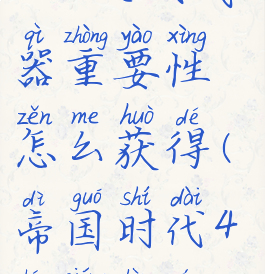 qì zhòng yào xìng
器重要性
zěn me huò dé
怎么获得(
dì guó shí dài
帝国时代4